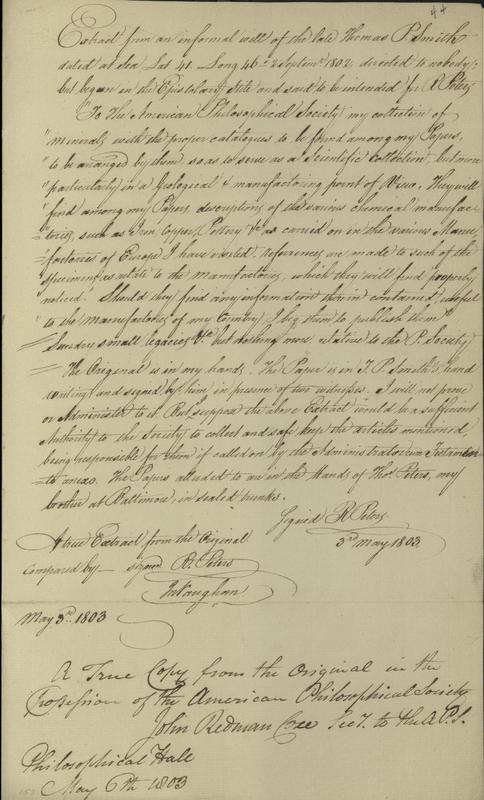 44
Extract from an informal will of the late Thomas P. Smith
dated at Sea Lat 41. Long 46. 2 Septemr. 1802. directed to nobody;
but begun in the Epistolary stile and said to be intended for R Peters
"To The American Philosophical Society my collection of
"minerals with the proper catalogues to be found among my Papers,
"to be arranged by them so as to serve as a Scientific Collection, but more
"particularly in a Geological & manufactoring point of View. They will
"find among my Papers, descriptions of the various chemical manufac-
"tories, such as Iron, Copper, Pottery &c as carried on in the various Manu-
"factories of Europe I have visited, references are made to such of the
"Specimens as relate to the manufactories, which they will find properly
"noticed." Should they find any information therein contained, useful
"to the Manufactories of my Country I beg them to publish them"
Sundry small legacies &c. but nothing more relative to the P. Society
The Original is in my hands. The Paper is in T. P. Smith's hand
writing and signed by him in presence of two witnesses. I will not prove
or Administer to it. But suppose the above Extract would be a sufficient
Authority to the Society to collect and safe keep the articles mentioned
being responsible for them if called on by the Administrator cum Testamen-
-to annexo. The Papers alluded to are in the Hands of Thos. Peters, my
brother at Baltimore, in sealed trunks.
Signed R Peters
3rd May 1803
A true Extract from the Original
compared by — signed R. Peters
Jn Vaughan
May 3rd. 1803
A True Copy from the Original in the
Possession of the American Philosophical Society
John Redman Coxe Secy. to the A.P.S.
Philosophical Hall
May 6th 1803